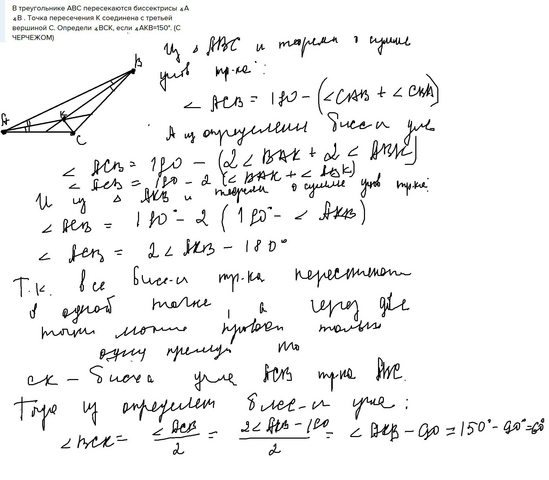 В треугольнике ABC пересекаются биссектрисы ∡A
∡B . Точка пересечения K соединена с третьей
вершиной C. Определи ∡BCK, если ∡AKB=150°. (С
ЧЕРЧЕЖОМ)
Из △ ABC и теоремы о сумме
углов тр-ка:
∠ ACB = 180 - (∠CAB + ∠CBA)
А из определения бисс-и угла
∠ ACB = 180 - (2∠BAK + 2∠ABK)
∠ ACB = 180 - 2 (∠BAK + ∠ABK)
И из △ AKB и теоремы о сумме углов тр-ка:
∠ ACB = 180° - 2 (180° - ∠ AKB)
∠ ACB = 2∠ AKB - 180°
Т.к. все бисс-и тр-ка пересекают
в одной точке, а через две
точки можно провести только
одну прямую то
CK - бисс-а угла ACB тр-ка ABC.
Тогда из определен бисс-и угла:
∠BCK = ∠ACB/2 = 2∠AKB - 180/2 = ∠AKB - 90 = 150° - 90° = 60°
B
A
K
C